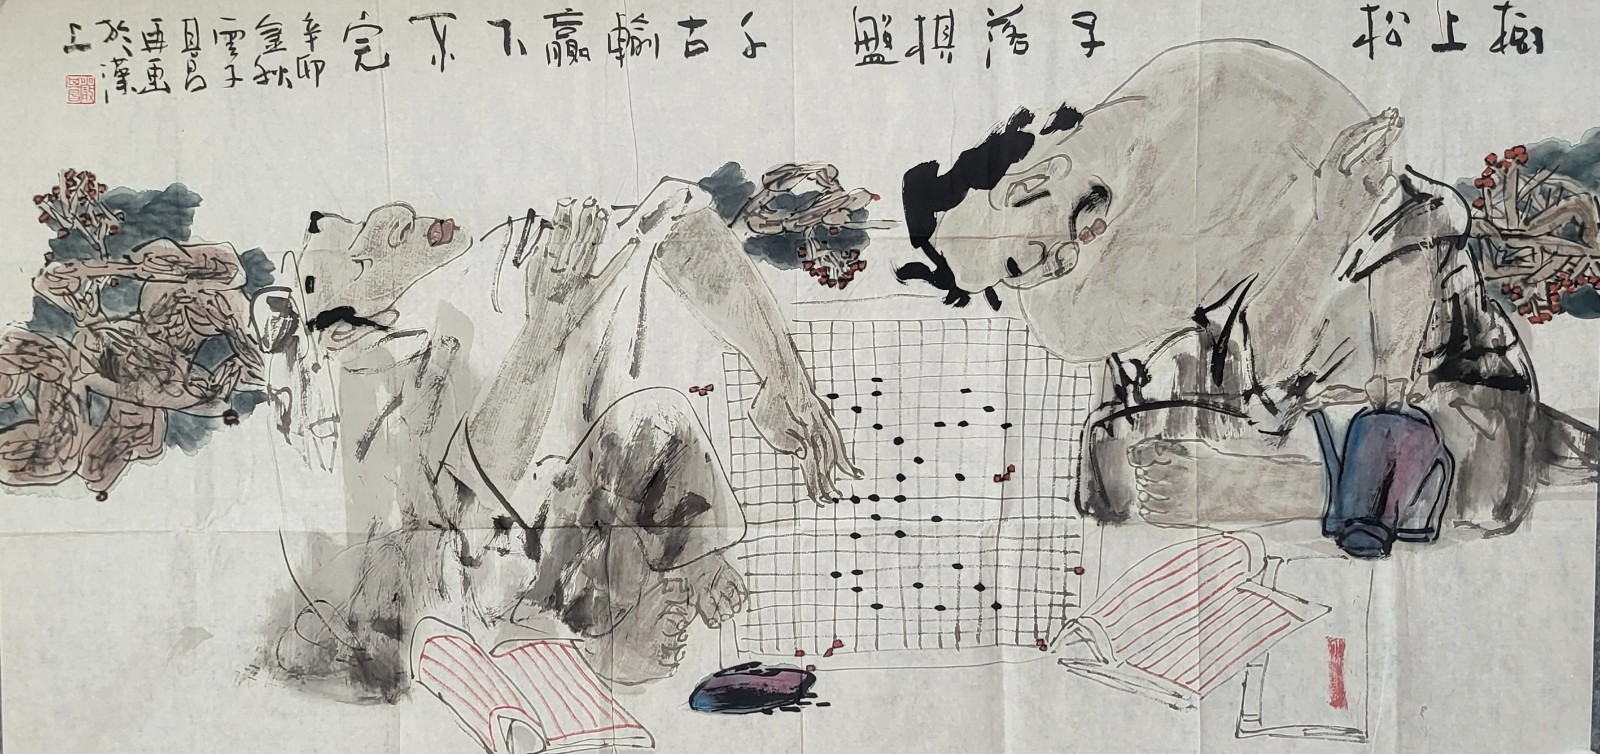 樹上松
子落棋盤
千古輸贏下不完
辛卯
金秋
雲子
再画
於漢
上